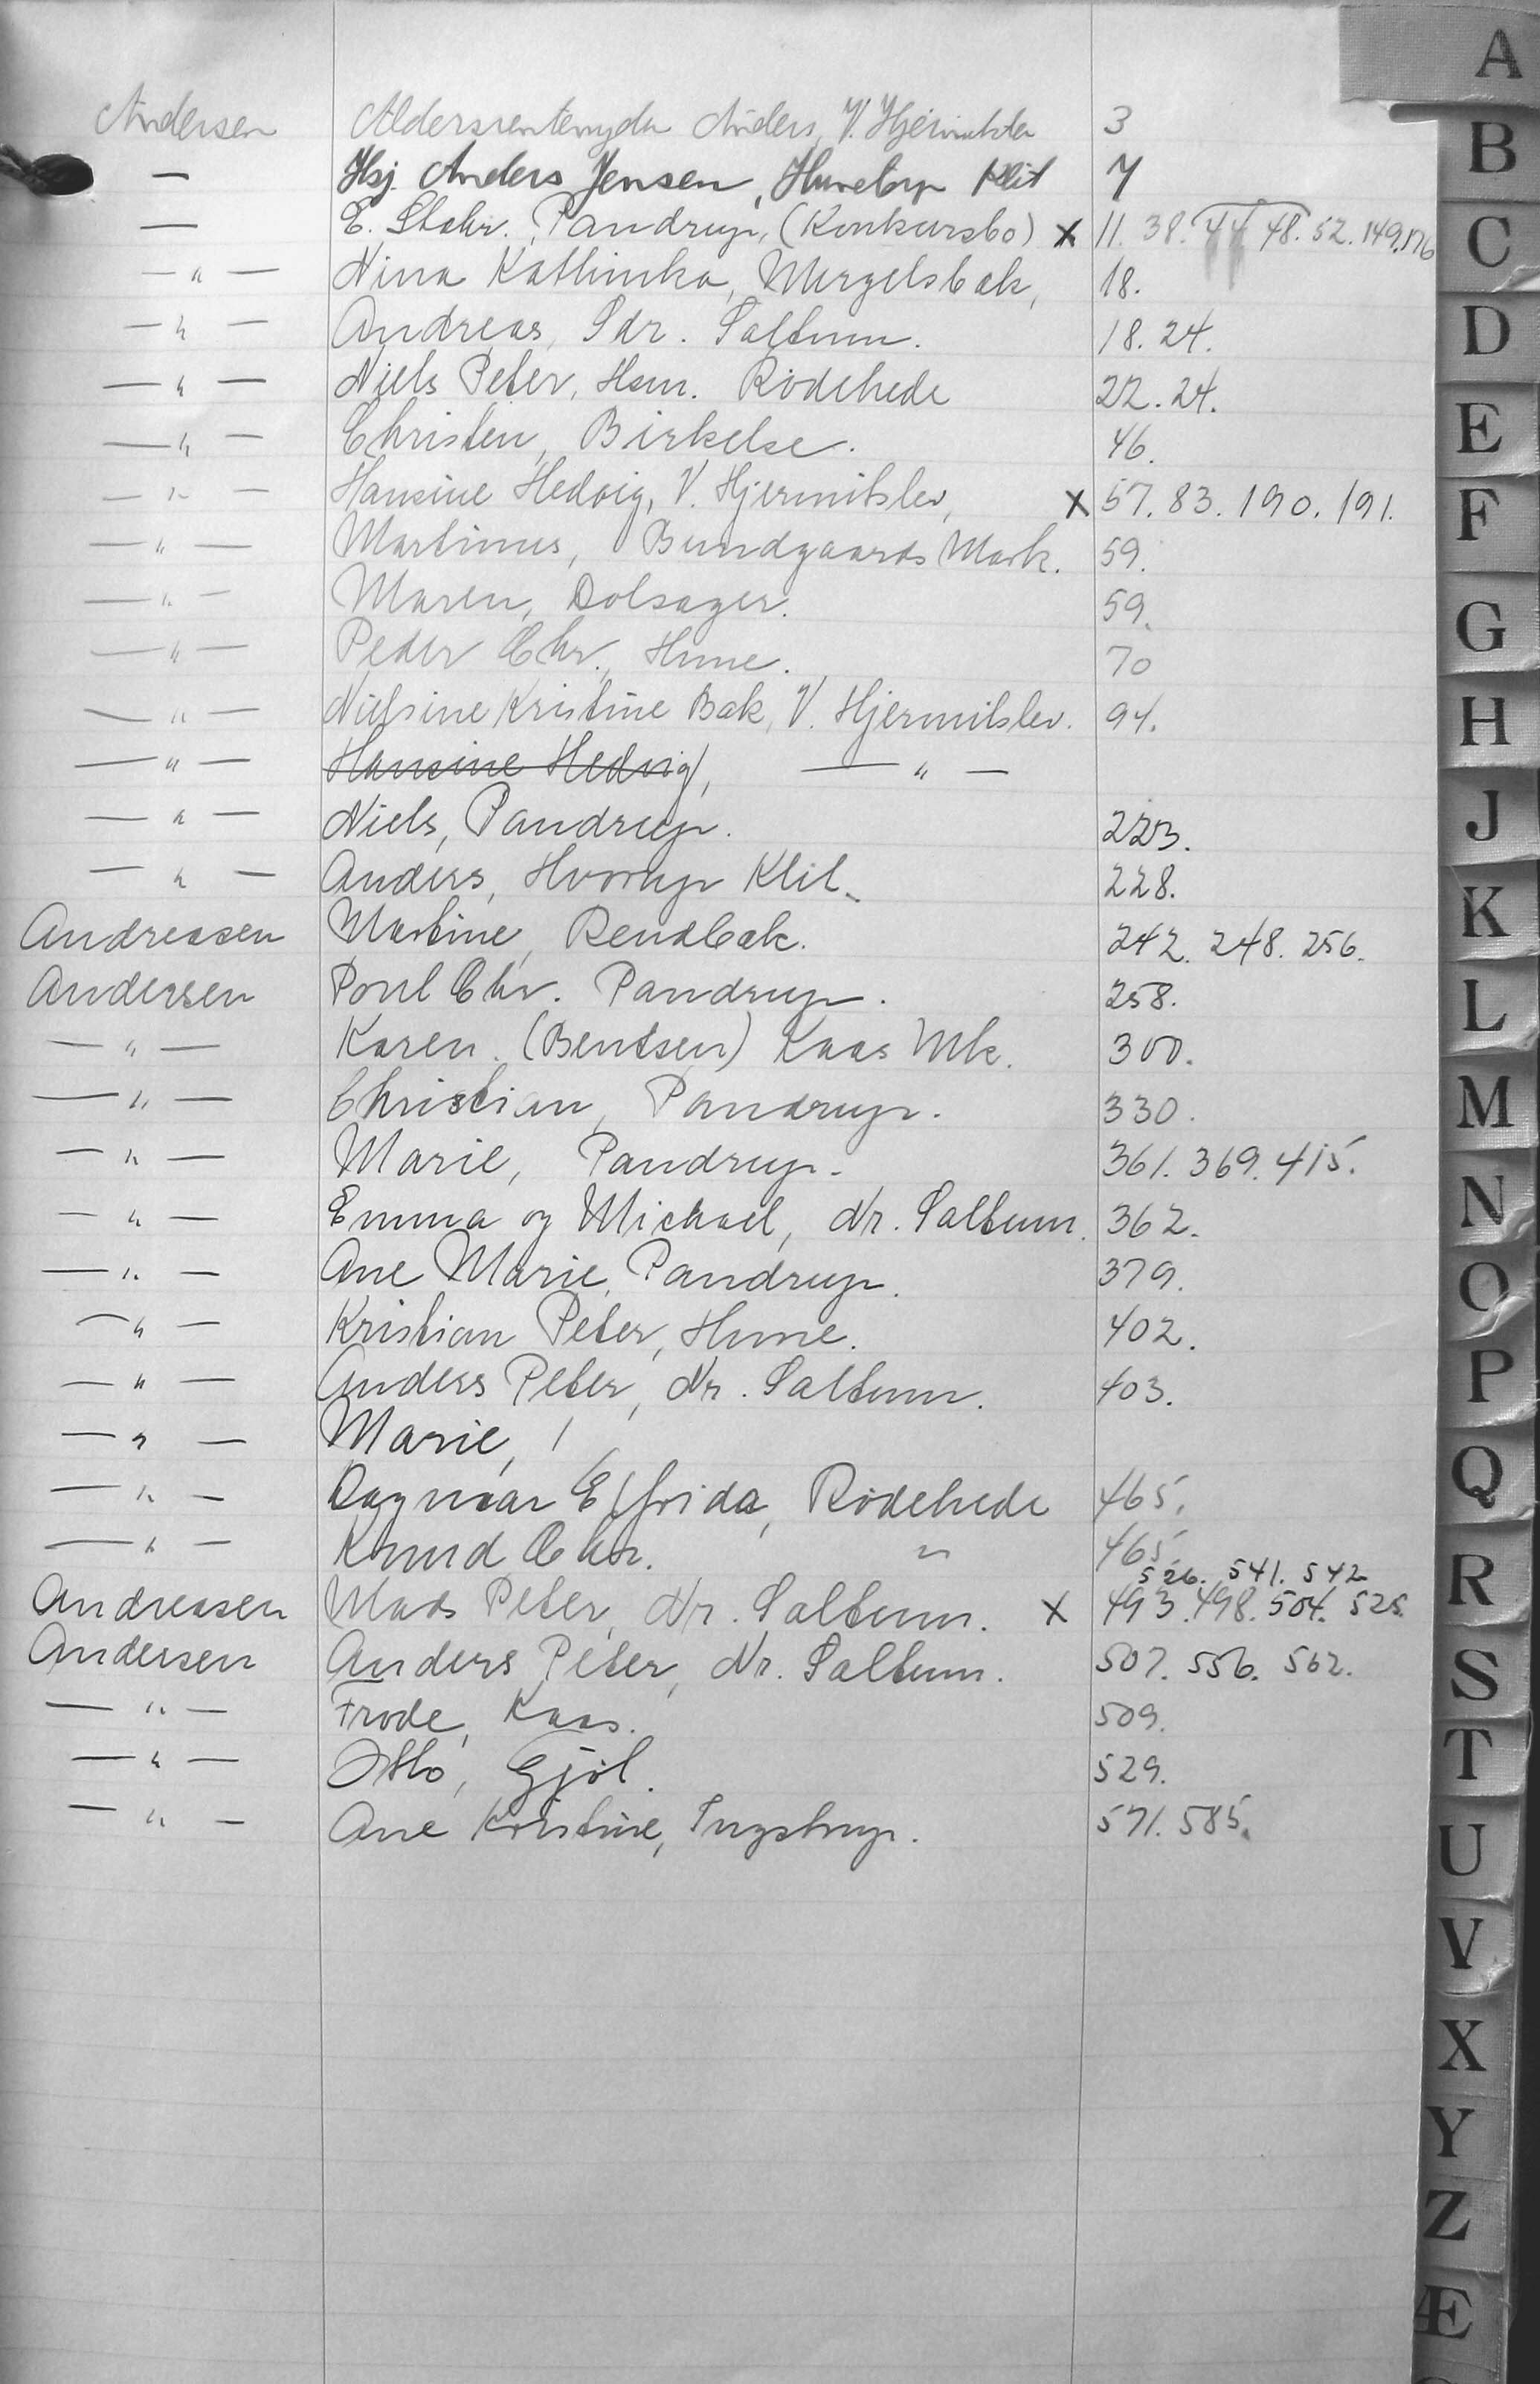 Andersen Aldersrentenyder Anders, V. Hjermitslev 3
— Hsj. Anders Jensen, Hunetorp Klit 7
— E. Stohr. Pandrup, (Konkursbo) x 11. 38. 44 48. 52. 149. 176
— " — Nina Kathinka, Mergelsbak, 18.
— " — Andreas, Sdr. Saltum. 18. 24.
— " — Niels Peter, Hsm. Rödehede 22. 24.
— " — Christen, Birkelse. 46.
— " — Hansine Hedvig, V. Hjermitslev, x 57. 83. 190. 191.
— " — Martinus, Bundgaards Mark. 59.
— " — Maren, Dolsager. 59.
— " — Peder Chr., Hune. 70
— " — Nielsine Kristine Bak, V. Hjermitslev. 94.
— " — Hansine Hedvig, — " —
— " — Niels, Pandrup. 223.
— " — Anders, Hvorup Klit. 228.
Andreasen Martine, Rendbak. 242. 248. 256.
Andersen Poul Chr. Pandrup. 258.
— " — Karen. (Bentsen) Kaas Mk. 300.
— " — Christian, Pandrup. 330.
— " — Marie, Pandrup. 361. 369. 415.
— " — Emma og Michael, Nr. Saltum. 362.
— " — Ane Marie, Pandrup. 379.
— " — Kristian Peter, Hune. 402.
— " — Anders Peter, Nr. Saltum. 403.
— " — Marie,
— " — Dagmar Elfrida, Rödehede 465.
— " — Knud Chr. " 465
526. 541. 542
Andreasen Mads Peter, Nr. Saltum. x 493. 498. 504. 525.
Andersen Anders Peter, Nr. Saltum. 507. 556. 562.
— " — Frode, Kaas. 509.
— " — Otto, Gjöl. 529.
— " — Ane Kristine, Ingstrup. 571. 585.
A
B
C
D
E
F
G
H
J
K
L
M
N
O
P
Q
R
S
T
U
V
X
Y
Z
Æ